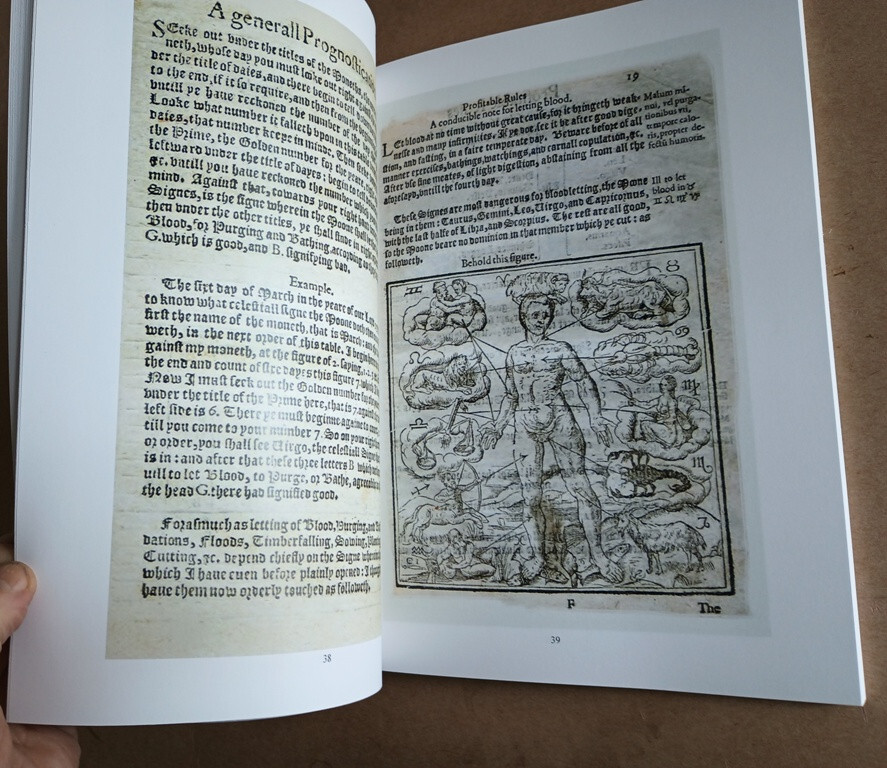 A generall Prognostication
SEeke out vnder the titles of the Moneths,
neth, whose day you must looke out right
der the title of daies, and there begin to tell
to the end, if it so require, and then from the
vntill ye haue reckoned the number of the
Looke what number it falleth vpon in this
daies, that number keepe in mind. Then
the Prime, the Golden number for the yeere,
leftward vnder the title of dayes: begin to tell
&c. vntill you haue reckoned the number which
mind. Against that, towards your right
Signes, is the signe wherein the Moone
then vnder the other titles, ye shall finde
Blood, for Purging and Bathing, according
G. which is good, and B. signifying bad.
Example.
The sixt day of March in the yeare of our
to know what celestiall signe the Moone
first the name of the moneth, that is March:
weth, in the next order of this table. I begin
against my moneth, at the figure of 2. saying, 1. 2.
the end and count of sixe dayes this figure 7.
Now I must seek out the Golden number
vnder the title of the Prime here, that is 7.
left side is 6. There ye must beginne againe to
till you come to your number 7. So on your right
or order, you shall see Virgo, the celestiall
is in: and after that these three letters B which
uill to let Blood, to Purge, or Bathe,
the head G. there had signified good.
Forasmuch as letting of Blood, Purging, and
dations, Floods, Timberfalling, Sowing,
Cutting, &c. depend chiefly on the Signe
which I haue euen before plainly opened: I
haue them now orderly touched as followeth.
38
19
Profitable Rules
A conducible note for letting blood.
LEt blood at no time without great cause, for it bringeth weak-
nesse and many infirmities. If ye doe, see it be after good dige-
stion, and fasting, in a faire temperate day. Beware before of all
manner exercises, bathings, watchings, and carnall copulation, &c.
After vse fine meates, of light digestion, abstaining from all the
aforesayd, vntill the fourth day.
Malum mi-
nui, vel purga-
tionibus vti,
tempore calo-
ris, propter de-
fectũ humoris.
These Signes are most dangerous for bloodletting, the Moone
being in them: Taurus, Gemini, Leo, Virgo, and Capricornus,
with the last halfe of Libra, and Scorpius. The rest are all good,
so the Moone beare no dominion in that member which ye cut: as
followeth.
Ill to let
blood in ♉
♊ ♌ ♍ ♑
Behold this figure.
♊ ♉
♋
♍
♎
♏
♐
♑
F The
39